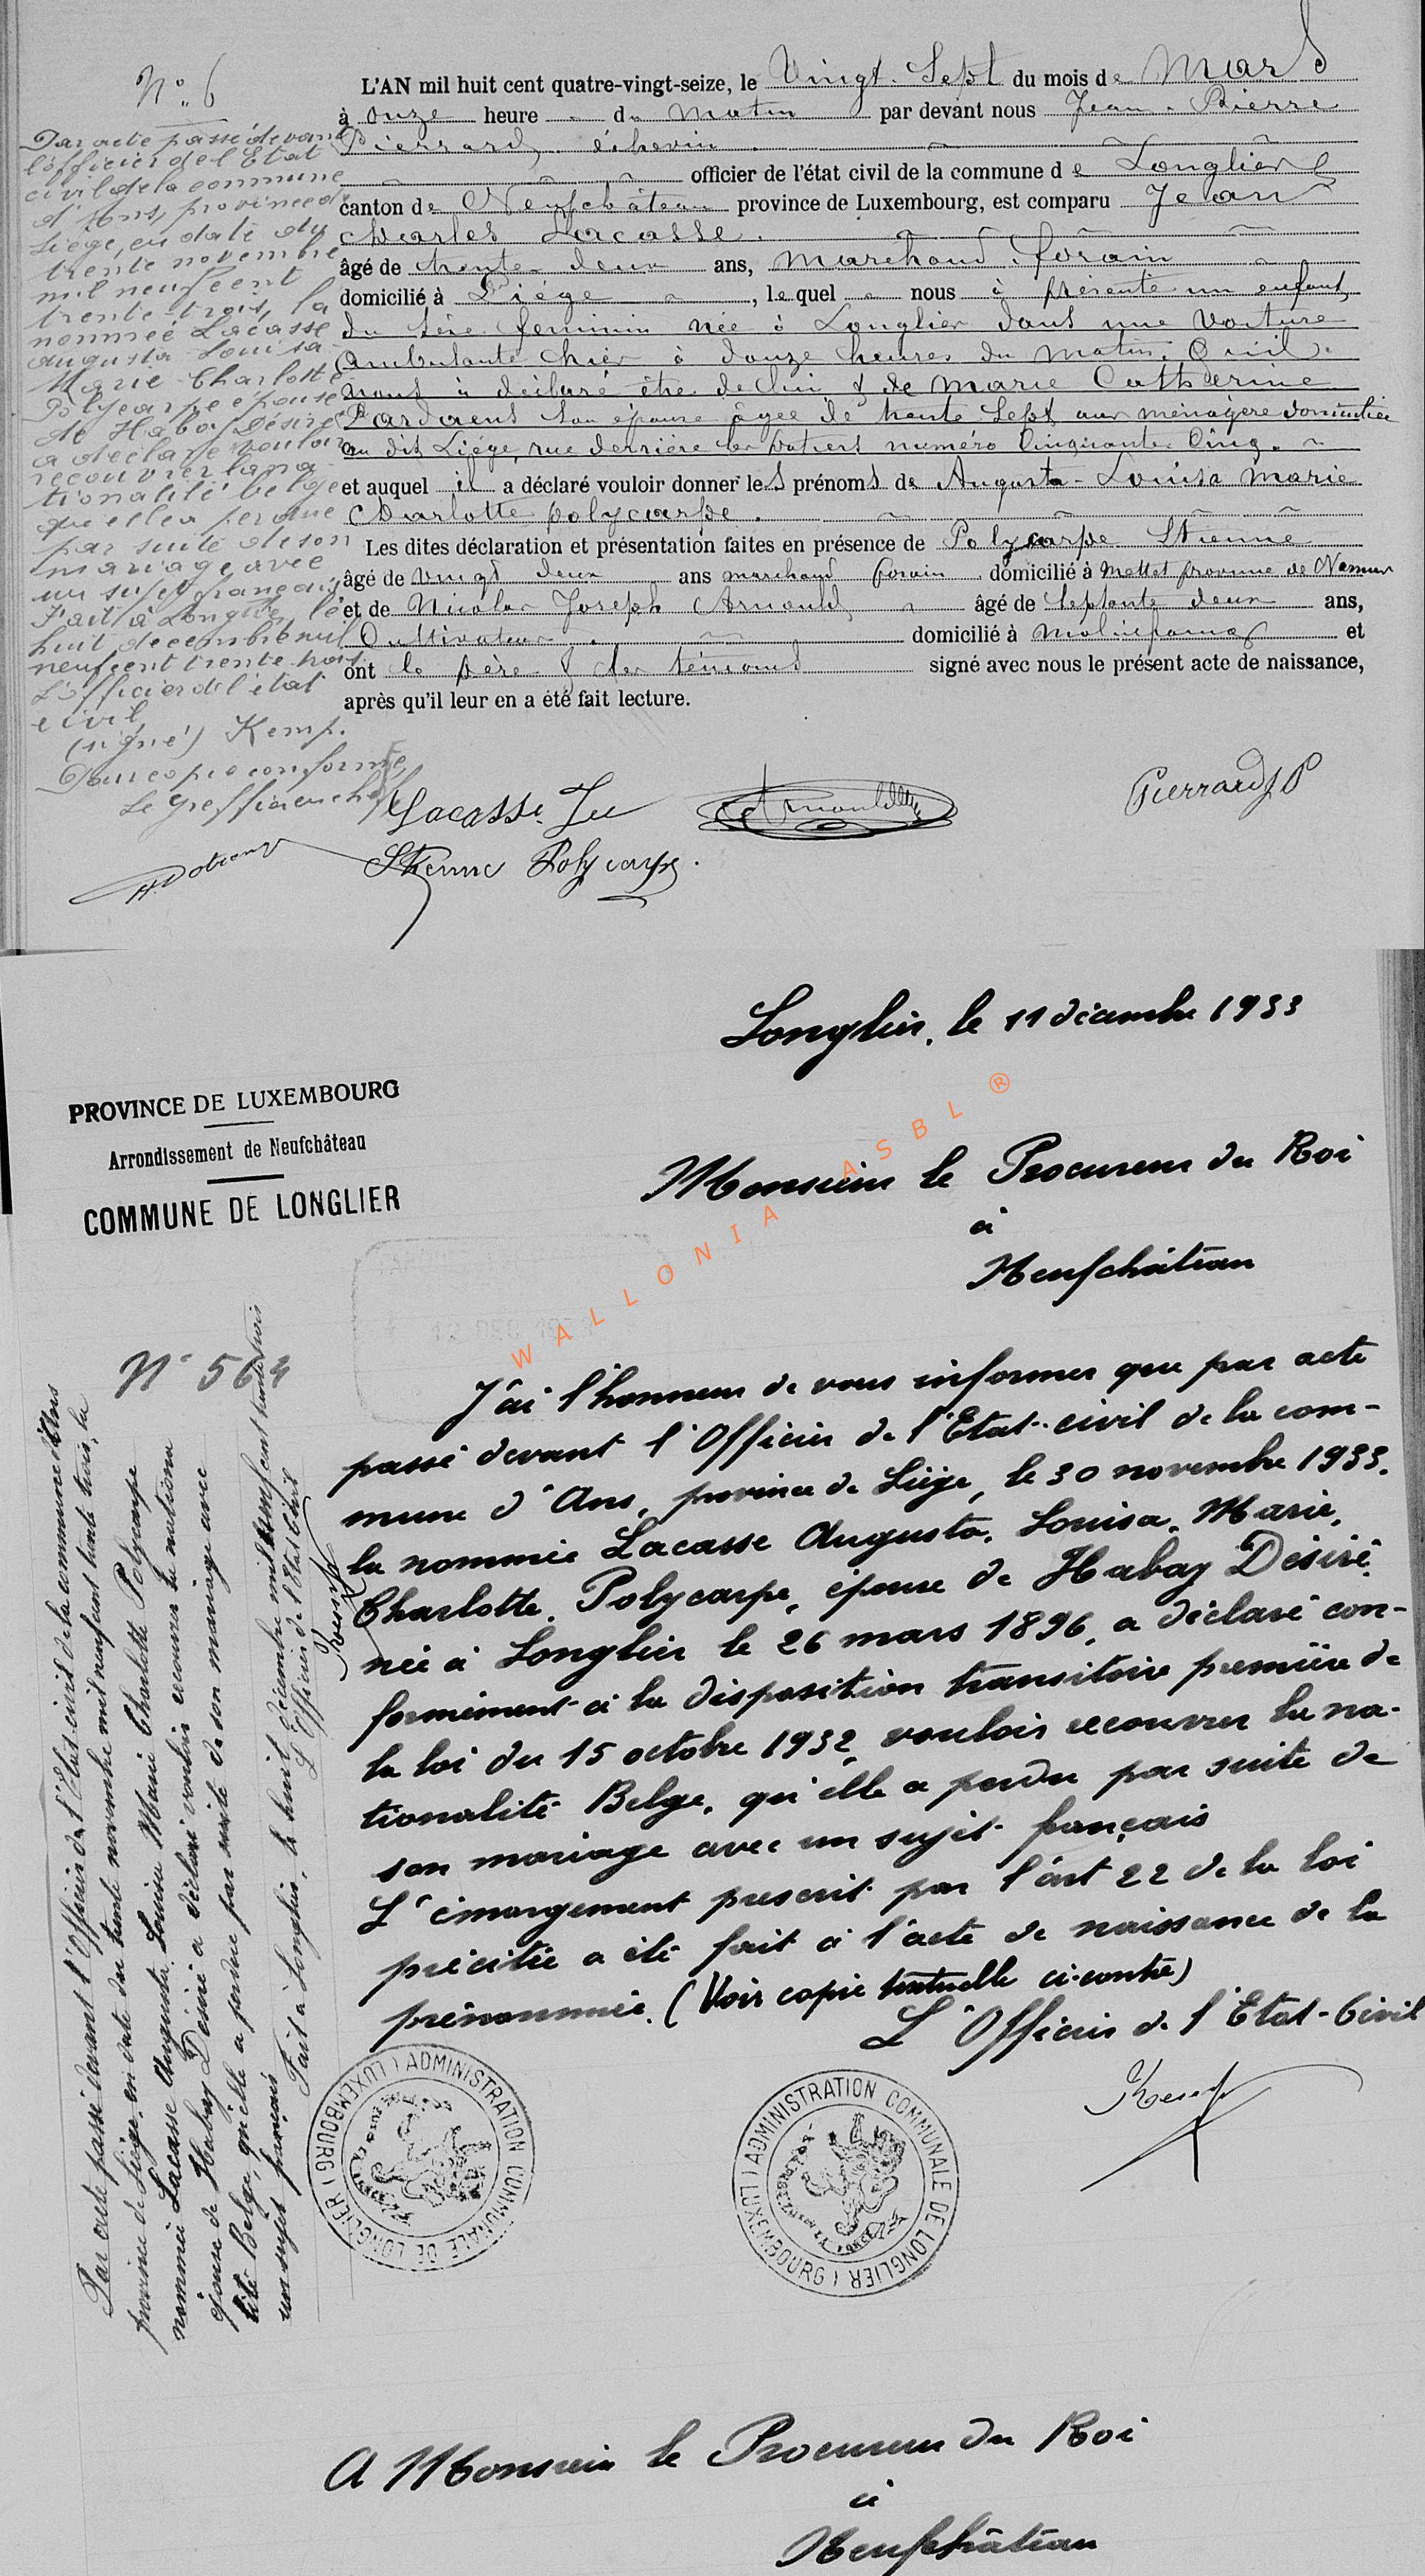 N° 6
L'AN mil huit cent quatre-vingt-seize, le Vingt-Sept du mois de Mars
à onze heure du matin par devant nous Jean-Pierre
Pierrard, échevin
officier de l'état civil de la commune de Longlier
canton de Neufchâteau province de Luxembourg, est comparu Jean
Charles Lacasse
âgé de trente-deux ans, marchand forain
domicilié à Liége, lequel nous à présenté un enfant
du sexe feminin née à Longlier dans une Voiture
ambulante hier à douze heures du matin. Qu'il
nous à déclaré être de lui & de Marie Catherine
Pardaens son épouse âgée de trente Sept ans ménagère domiciliée
au dit Liége, rue derrière les potiers numéro Cinquante-Cinq.
et auquel il a déclaré vouloir donner les prénoms de Augusta-Louisa Marie
Charlotte polycarpe.
Les dites déclaration et présentation faites en présence de Polycarpe Stienne
âgé de vingt deux ans marchand forain domicilié à Mettet province de Namur
et de Nicolas Joseph Arnould âgé de septante deux ans,
Cultivateur domicilié à Molinfaing et
ont le père & les témoins signé avec nous le présent acte de naissance,
après qu'il leur en a été fait lecture.
Par acte passé devant
l'officier de l'Etat
civil de la commune
d'Ans, province de
Liège, en date du
trente novembre
mil neuf cent
trente-trois, la
nommée Lacasse
Augusta Louisa
Marie Charlotte
Polycarpe épouse
de Habay Désiré
a déclaré vouloir
recouvrer la na-
tionalité belge
qu'elle a perdue
par suite de son
mariage avec
un sujet français
Fait à Longlier, le
huit décembre mil
neuf cent trente trois
L'officier de l'état
civil,
(signé) Kemp.
Pour copie conforme,
Le greffier en chef
Lacasse Jn
Arnould
Pierrard J.P
Stienne Polycarpe.
Longlier, le 11 décembre 1933
PROVINCE DE LUXEMBOURG
Arrondissement de Neufchâteau
COMMUNE DE LONGLIER
WALLONIA ASBL ®
Monsieur le Procureur du Roi
à
Neufchâteau
N° 564
J'ai l'honneur de vous informer que par acte
passé devant l'Officier de l'Etat-civil de la com-
mune d'Ans, province de Liège, le 30 novembre 1933,
la nommée Lacasse Augusta, Louisa, Marie,
Charlotte, Polycarpe, épouse de Habay Désiré,
née à Longlier le 26 mars 1896, a déclaré con-
formément à la disposition transitoire première de
la loi du 15 octobre 1932, vouloir recouvrer la na-
tionalité Belge, qu'elle a perdu par suite de
son mariage avec un sujet français
L'émargement prescrit par l'art 22 de la loi
précitée a été fait à l'acte de naissance de la
prénommée. (Voir copie textuelle ci-contre)
L'Officier de l'Etat-Civil
Kemp
Par acte passé devant l'Officier de l'Etat civil de la commune d'Ans
province de Liège, en date du trente novembre mil neuf cent trente trois, la
nommée Lacasse Augusta Louisa Marie Charlotte Polycarpe
épouse de Habay Désiré a déclaré vouloir recouvrer la nationa
lité Belge, qu'elle a perdue par suite de son mariage avec
un sujet français Fait à Longlier, le huit décembre mil neuf cent trente trois
L'Officier de l'Etat Civil
Kemp
ADMINISTRATION COMMUNALE DE LONGLIER (LUXEMBOURG)
ADMINISTRATION COMMUNALE DE LONGLIER (LUXEMBOURG)
A Monsieur le Procureur du Roi
à
Neufchâteau